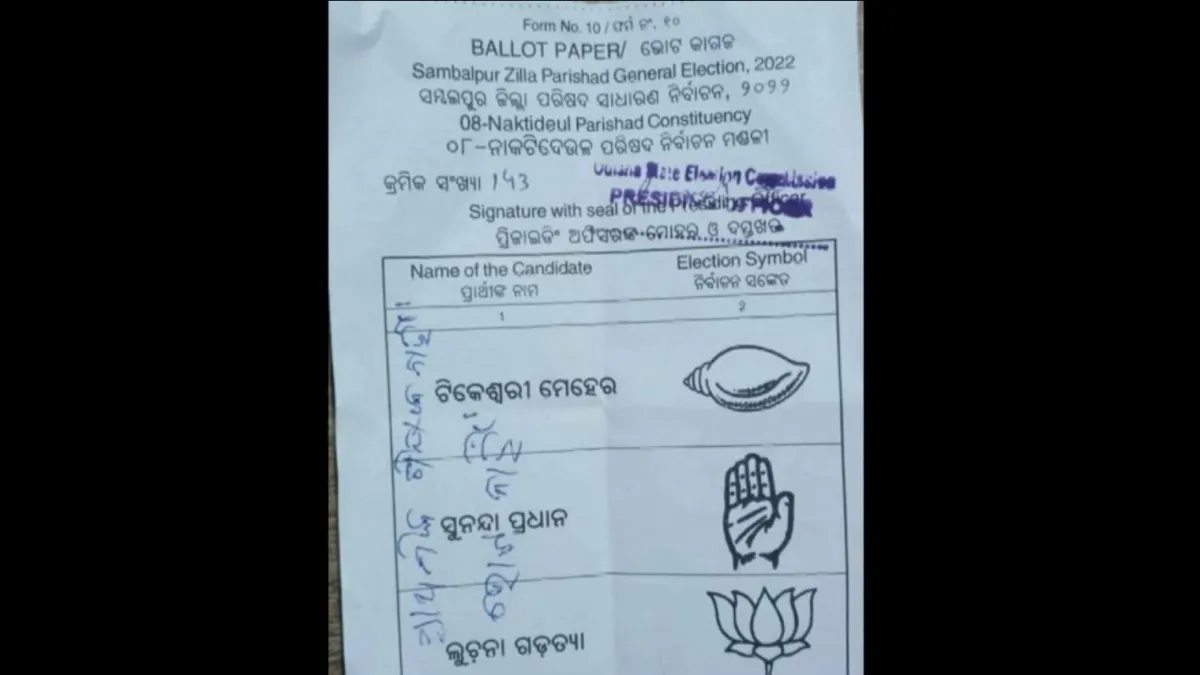 Form No. 10 / ଫର୍ମ ନଂ. ୧୦
BALLOT PAPER/ ଭୋଟ କାଗଜ
Sambalpur Zilla Parishad General Election, 2022
ସମ୍ବଲପୁର ଜିଲ୍ଲା ପରିଷଦ ସାଧାରଣ ନିର୍ବାଚନ, ୨୦୨୨
08-Naktideul Parishad Constituency
୦୮-ନାକଟିଦେଉଳ ପରିଷଦ ନିର୍ବାଚନ ମଣ୍ଡଳୀ
କ୍ରମିକ ସଂଖ୍ୟା 143
State Election Commission
PRESIDING OFFICER
Signature with seal of the Presiding Officer
ପ୍ରିଜାଇଡିଂ ଅଫିସରଙ୍କ ମୋହର ଓ ଦସ୍ତଖତ
Name of the Candidate Election Symbol
ପ୍ରାର୍ଥୀଙ୍କ ନାମ ନିର୍ବାଚନ ସଙ୍କେତ
1 ୨
ଟିକେଶ୍ୱରୀ ମେହେର
ସୁନନ୍ଦା ପ୍ରଧାନ
ଲୁଚନା ଗଡ଼ତ୍ୟା